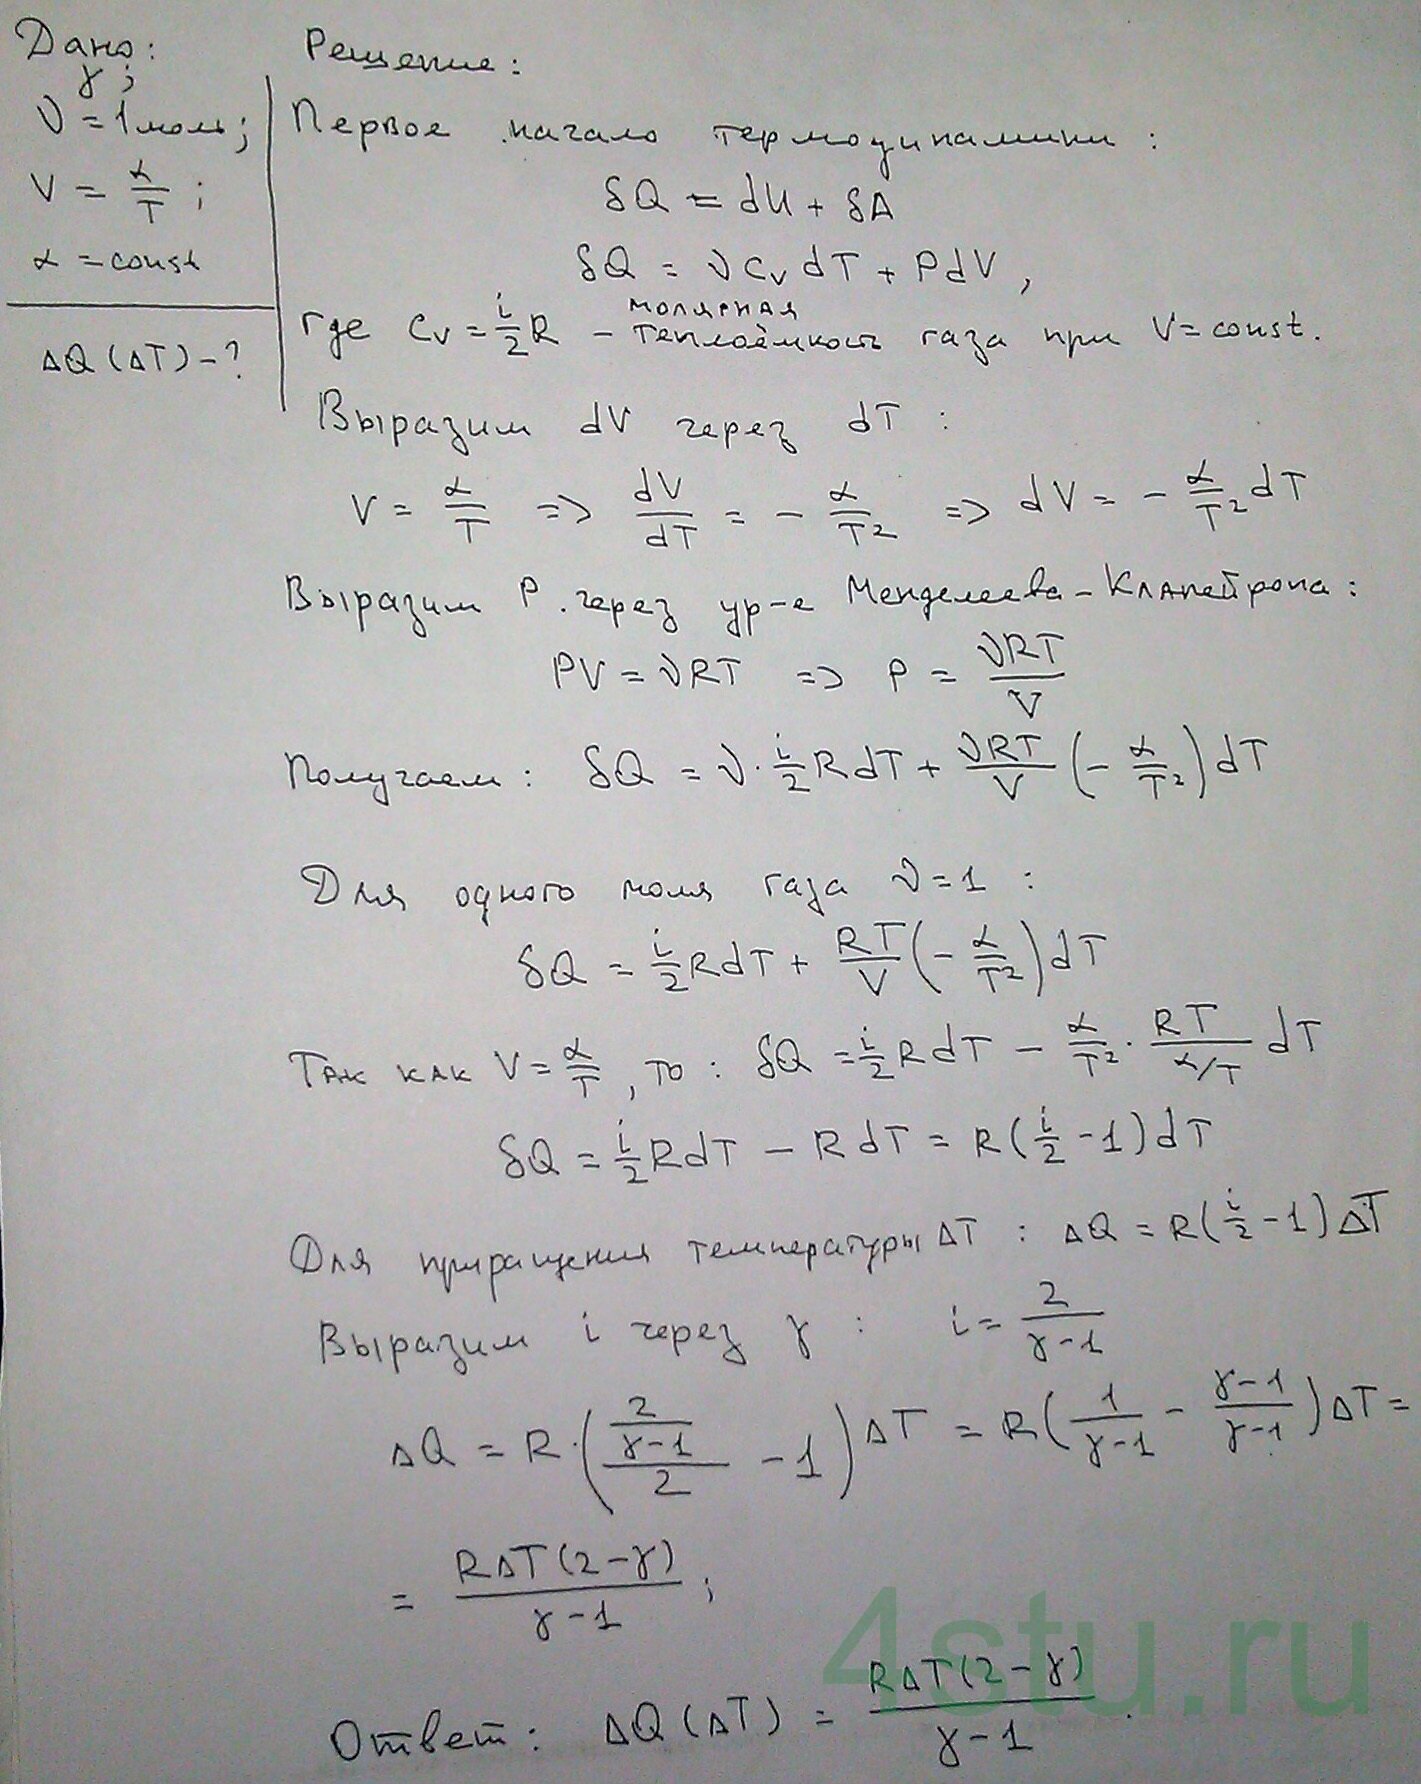 Дано:
γ;
ν = 1 моль;
V = α/T ;
α = const
ΔQ (ΔT) – ?
Решение:
Первое начало термодинамики :
δQ = dU + δA
δQ = ν Cv dT + P dV ,
где Cv = i/2 R – молярная теплоёмкость газа при V = const.
Выразим dV через dT :
V = α/T => dV/dT = – α/T² => dV = – α/T² dT
Выразим P через ур-е Менделеева – Клапейрона :
PV = νRT => P = νRT/V
Получаем : δQ = ν · i/2 R dT + νRT/V (– α/T²) dT
Для одного моля газа ν = 1 :
δQ = i/2 R dT + RT/V (– α/T²) dT
Так как V = α/T , то : δQ = i/2 R dT – α/T² · RT/(α/T) dT
δQ = i/2 R dT – R dT = R ( i/2 – 1) dT
Для приращения температуры ΔT : ΔQ = R ( i/2 – 1) ΔT
Выразим i через γ : i = 2/(γ – 1)
ΔQ = R · ( (2/(γ – 1))/2 – 1 ) ΔT = R ( 1/(γ – 1) – (γ – 1)/(γ – 1) ) ΔT =
= RΔT (2 – γ)/(γ – 1) ;
Ответ : ΔQ (ΔT) = RΔT (2 – γ)/(γ – 1) .
4stu.ru